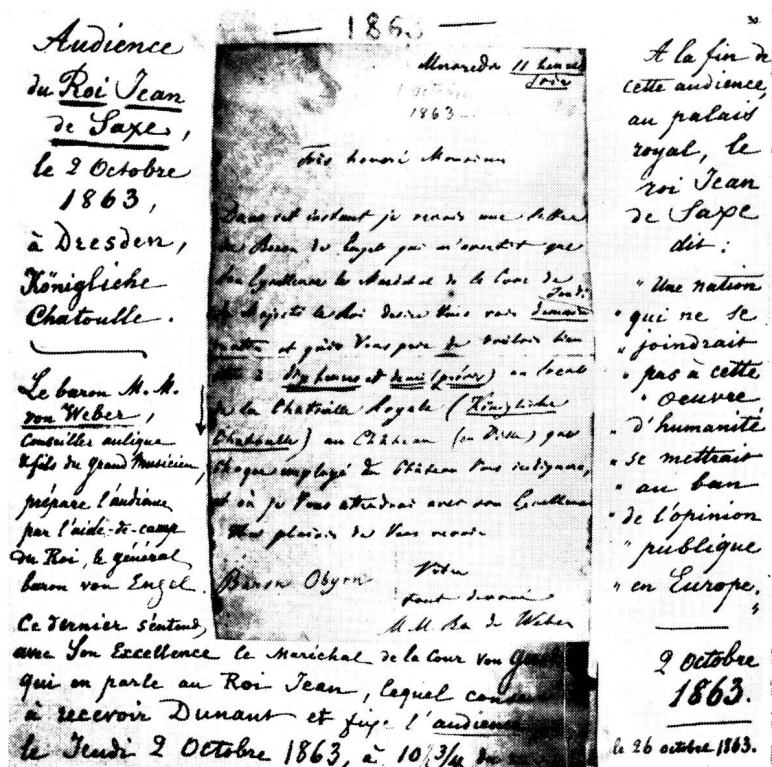 — 186 —
30.
Audience
du Roi Jean
de Saxe,
le 2 Octobre
1863,
à Dresden,
Königliche
Chatoulle.
Le baron M. M.
von Weber,
Conseiller aulique
& fils du grand Musicien,
prépare l'audience
par l'aide-de-camp
du Roi, le général
baron von Engel.
Ce dernier s'entend,
avec Son Excellence le Maréchal de la Cour von
qui en parle au Roi Jean, lequel
à recevoir Dunant et fixe l'audience
le Jeudi 2 Octobre 1863, à 10 3/4 du
11 heures
Soir
1863
Très honoré Monsieur
Dans cet instant je reçois une lettre
du Baron de Engel qui m'avertit que
Son Excellence le Maréchal de la Cour de
Jeudi
Sa Majesté le Roi desire Vous voir demain
matin et qu'il Vous prie de vouloir bien
à dix heures et demie (précises) au locale
de la Chatoulle Royale (Königliche
Chatoulle) au Château (en Ville) que
chaque employé du Château Vous indiquera,
et où je Vous attendrai avec son Excellence
plaisir de Vous revoir
Baron
Votre
tout devoué
M. M. Bn de Weber
A la fin de
cette audience,
au palais
royal, le
roi Jean
de Saxe
dit :
" Une nation
" qui ne se
" joindrait
" pas à cette
" oeuvre
" d'humanité
" se mettrait
" au ban
" de l'opinion
" publique
" en Europe.
"
2 octobre
1863.
le 26 octobre 1863.